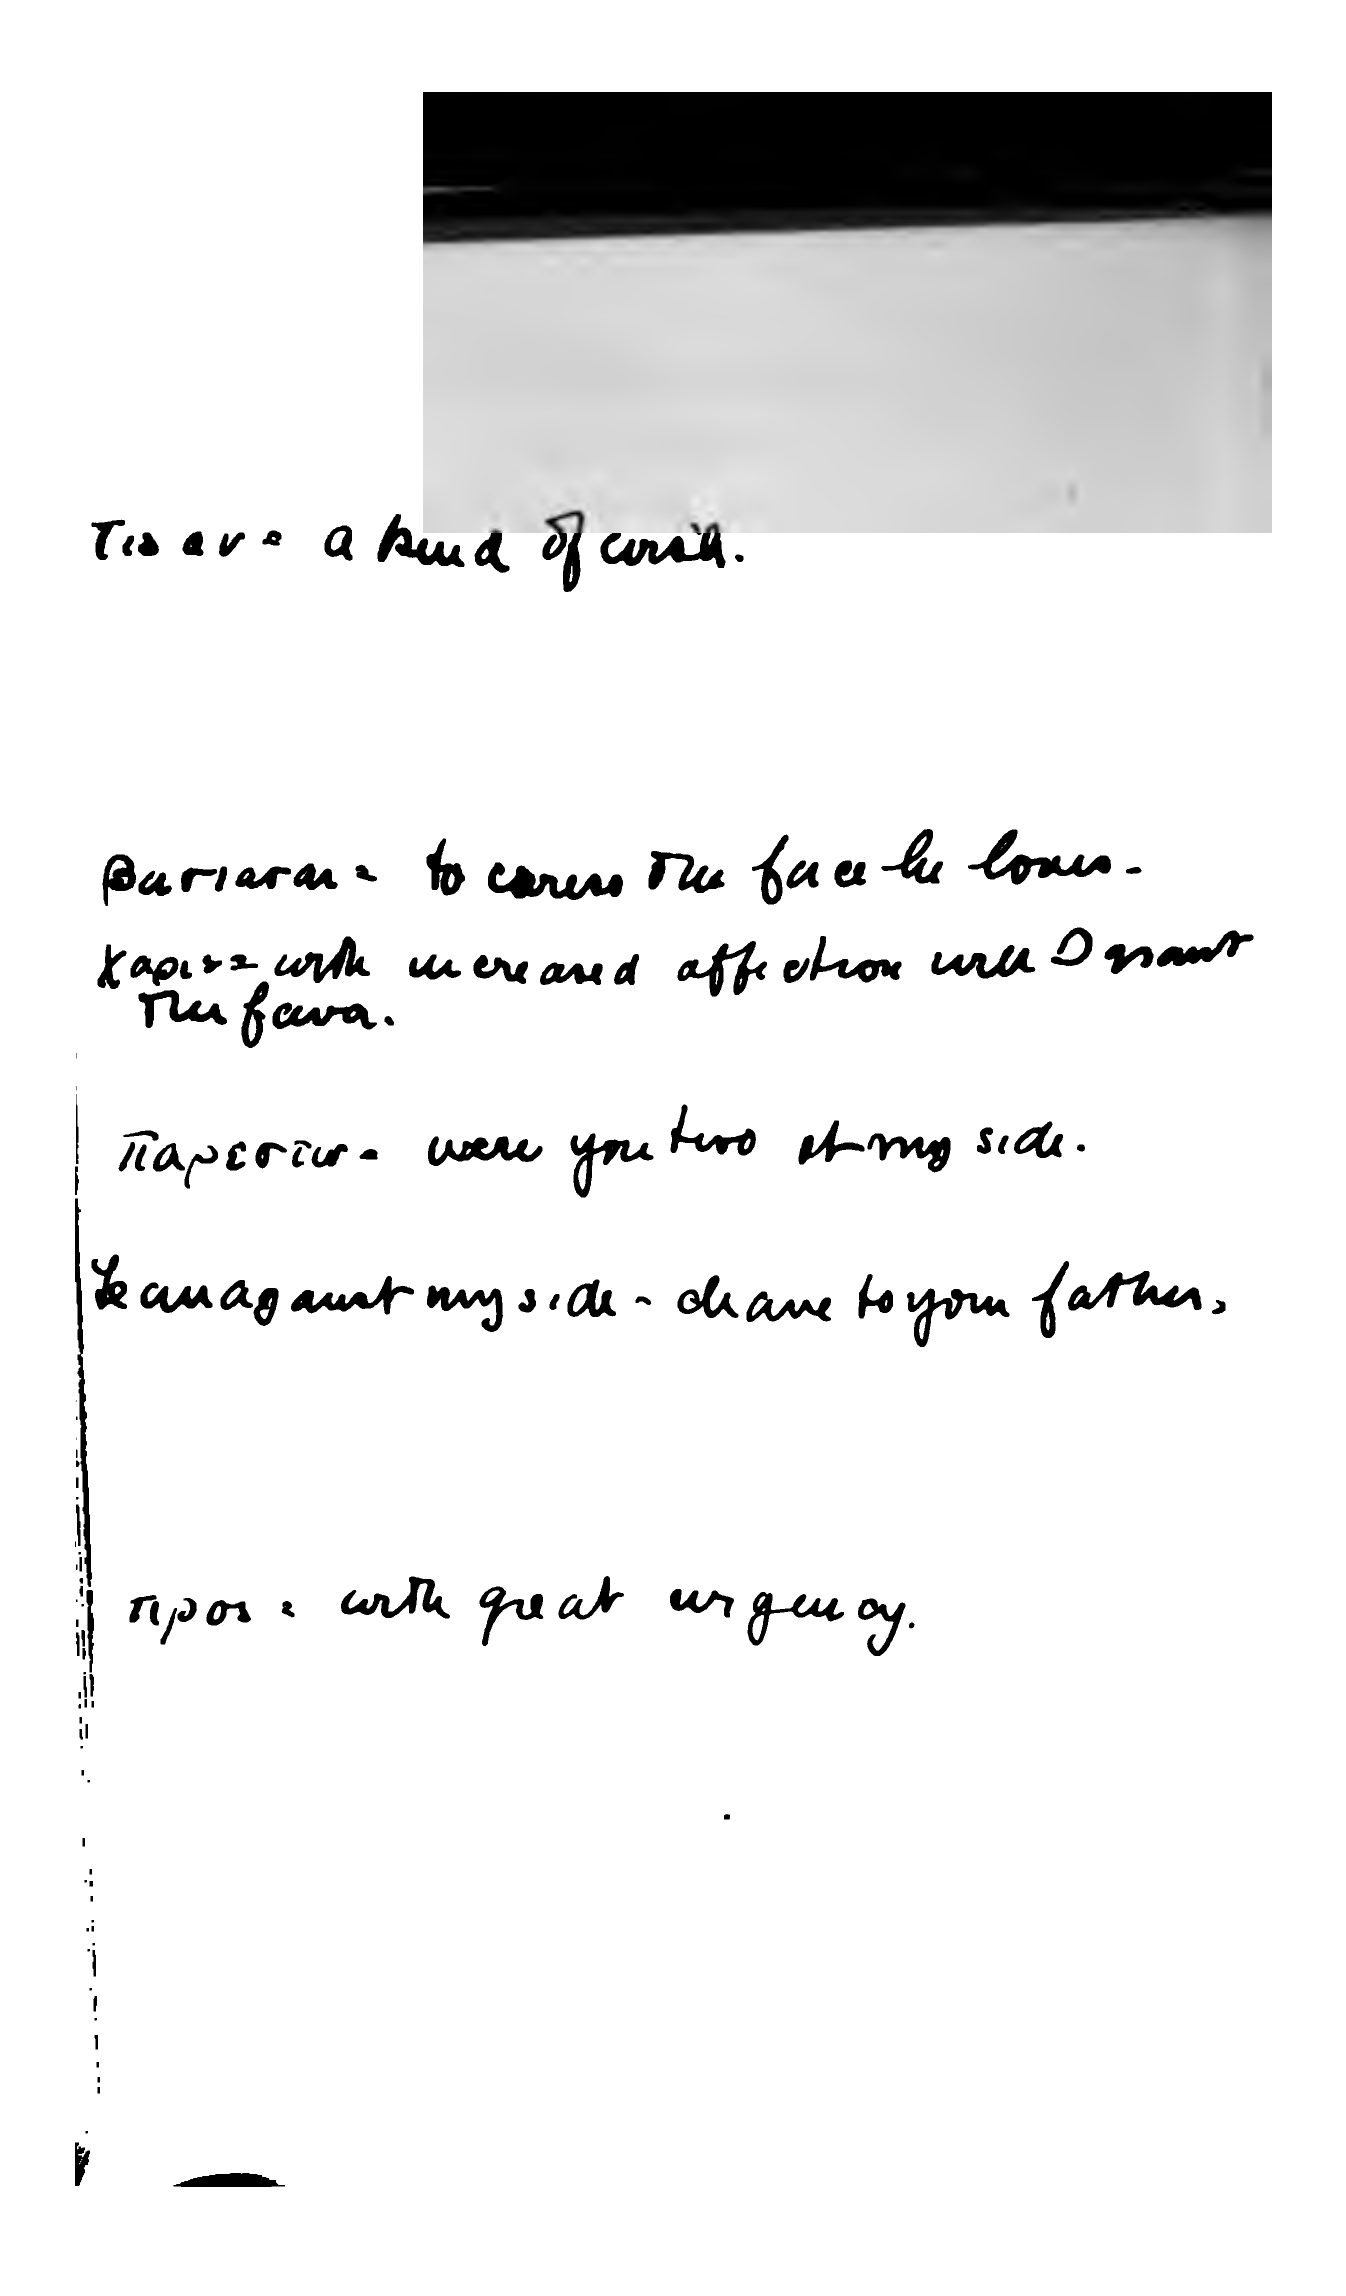 τις αν = a kind of wish.
βαστασαι = to caress the face he loves -
χαρις = with increased affection will I grant
the favor.
παρεστιν = were you two at my side.
Lean against my side - cleave to your father,
προς = with great urgency.